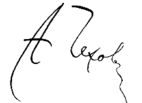 А Чехов